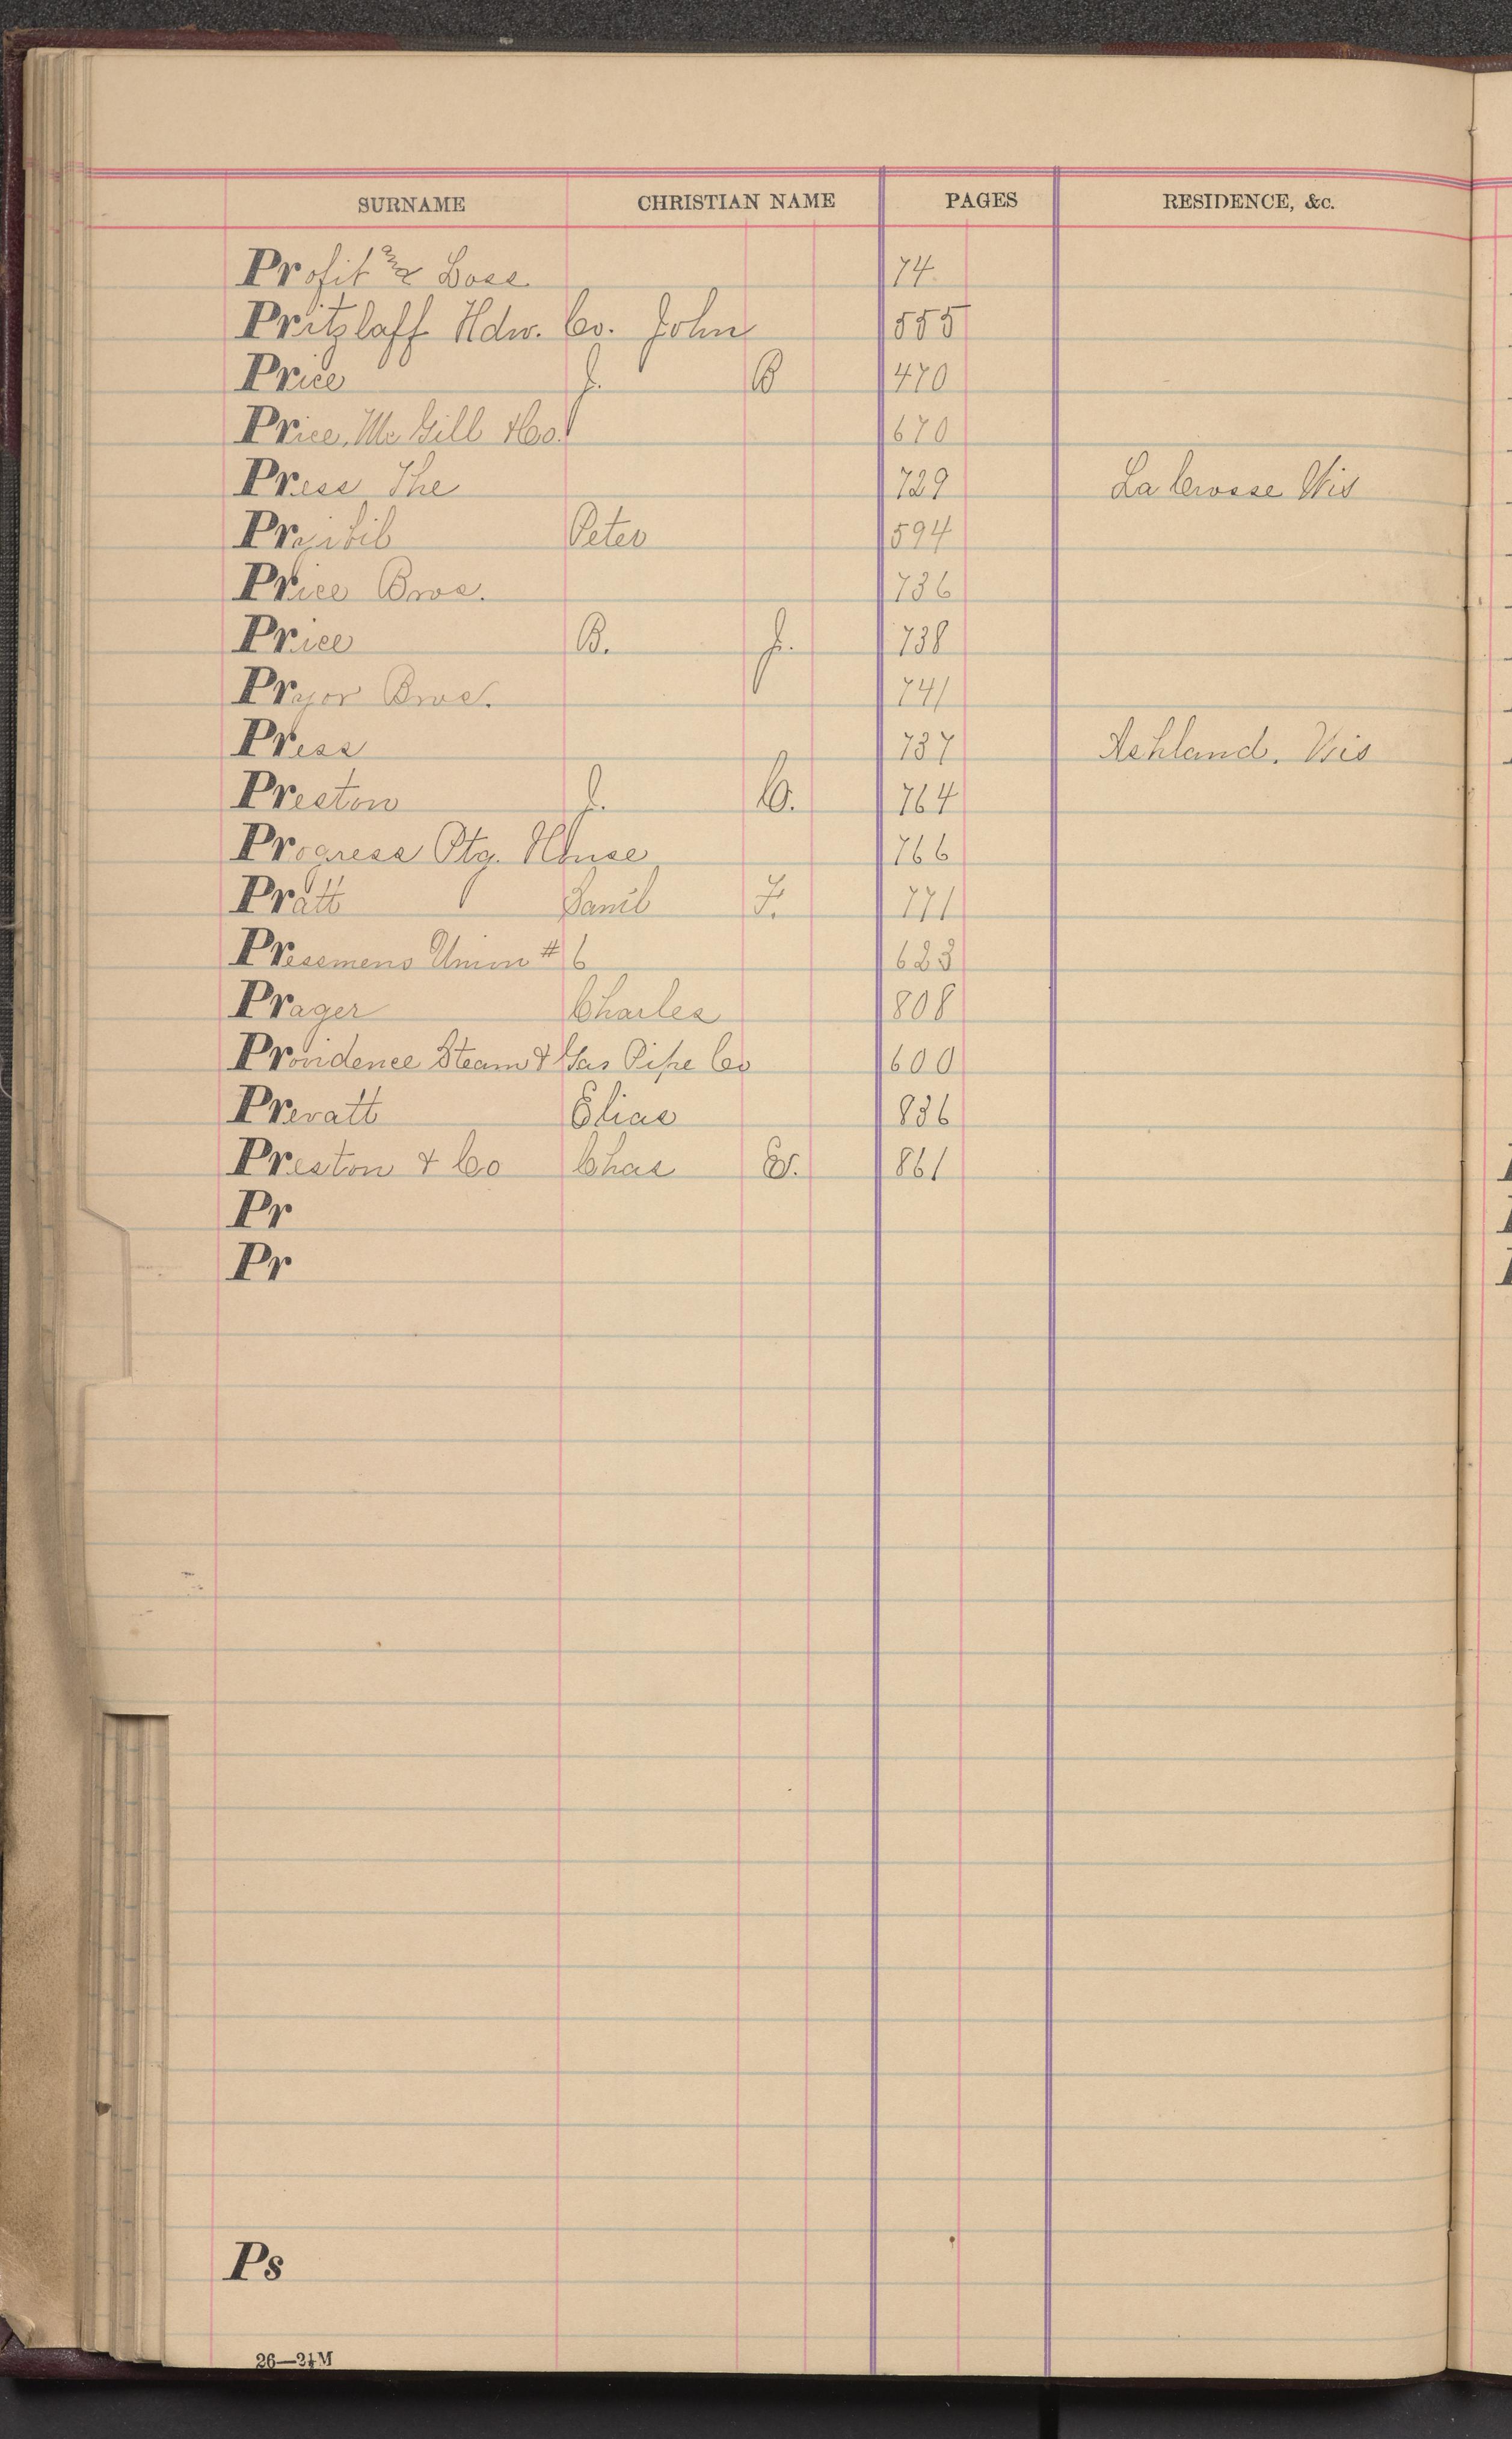 SURNAME CHRISTIAN NAME PAGES RESIDENCE, &c.
Profit & Loss 74
Pritzlaff Hdw. Co. John 555
Price J. B 470
Price, McGill & Co. 670
Press The 729 La Crosse Wis
Peter 594
Price Bros. 736
Price B. J. 738
Pryor Bros. 741
Press 737 Ashland. Wis
Preston J. C. 764
Progress Ptg. House 766
Pratt Saml F. 771
Pressmens Union # 6 623
Prager Charles 808
Providence Steam & Gas Pipe Co 600
Prevatt Elias 836
Preston & Co Chas 861
Pr
Pr
Ps
26—2½M